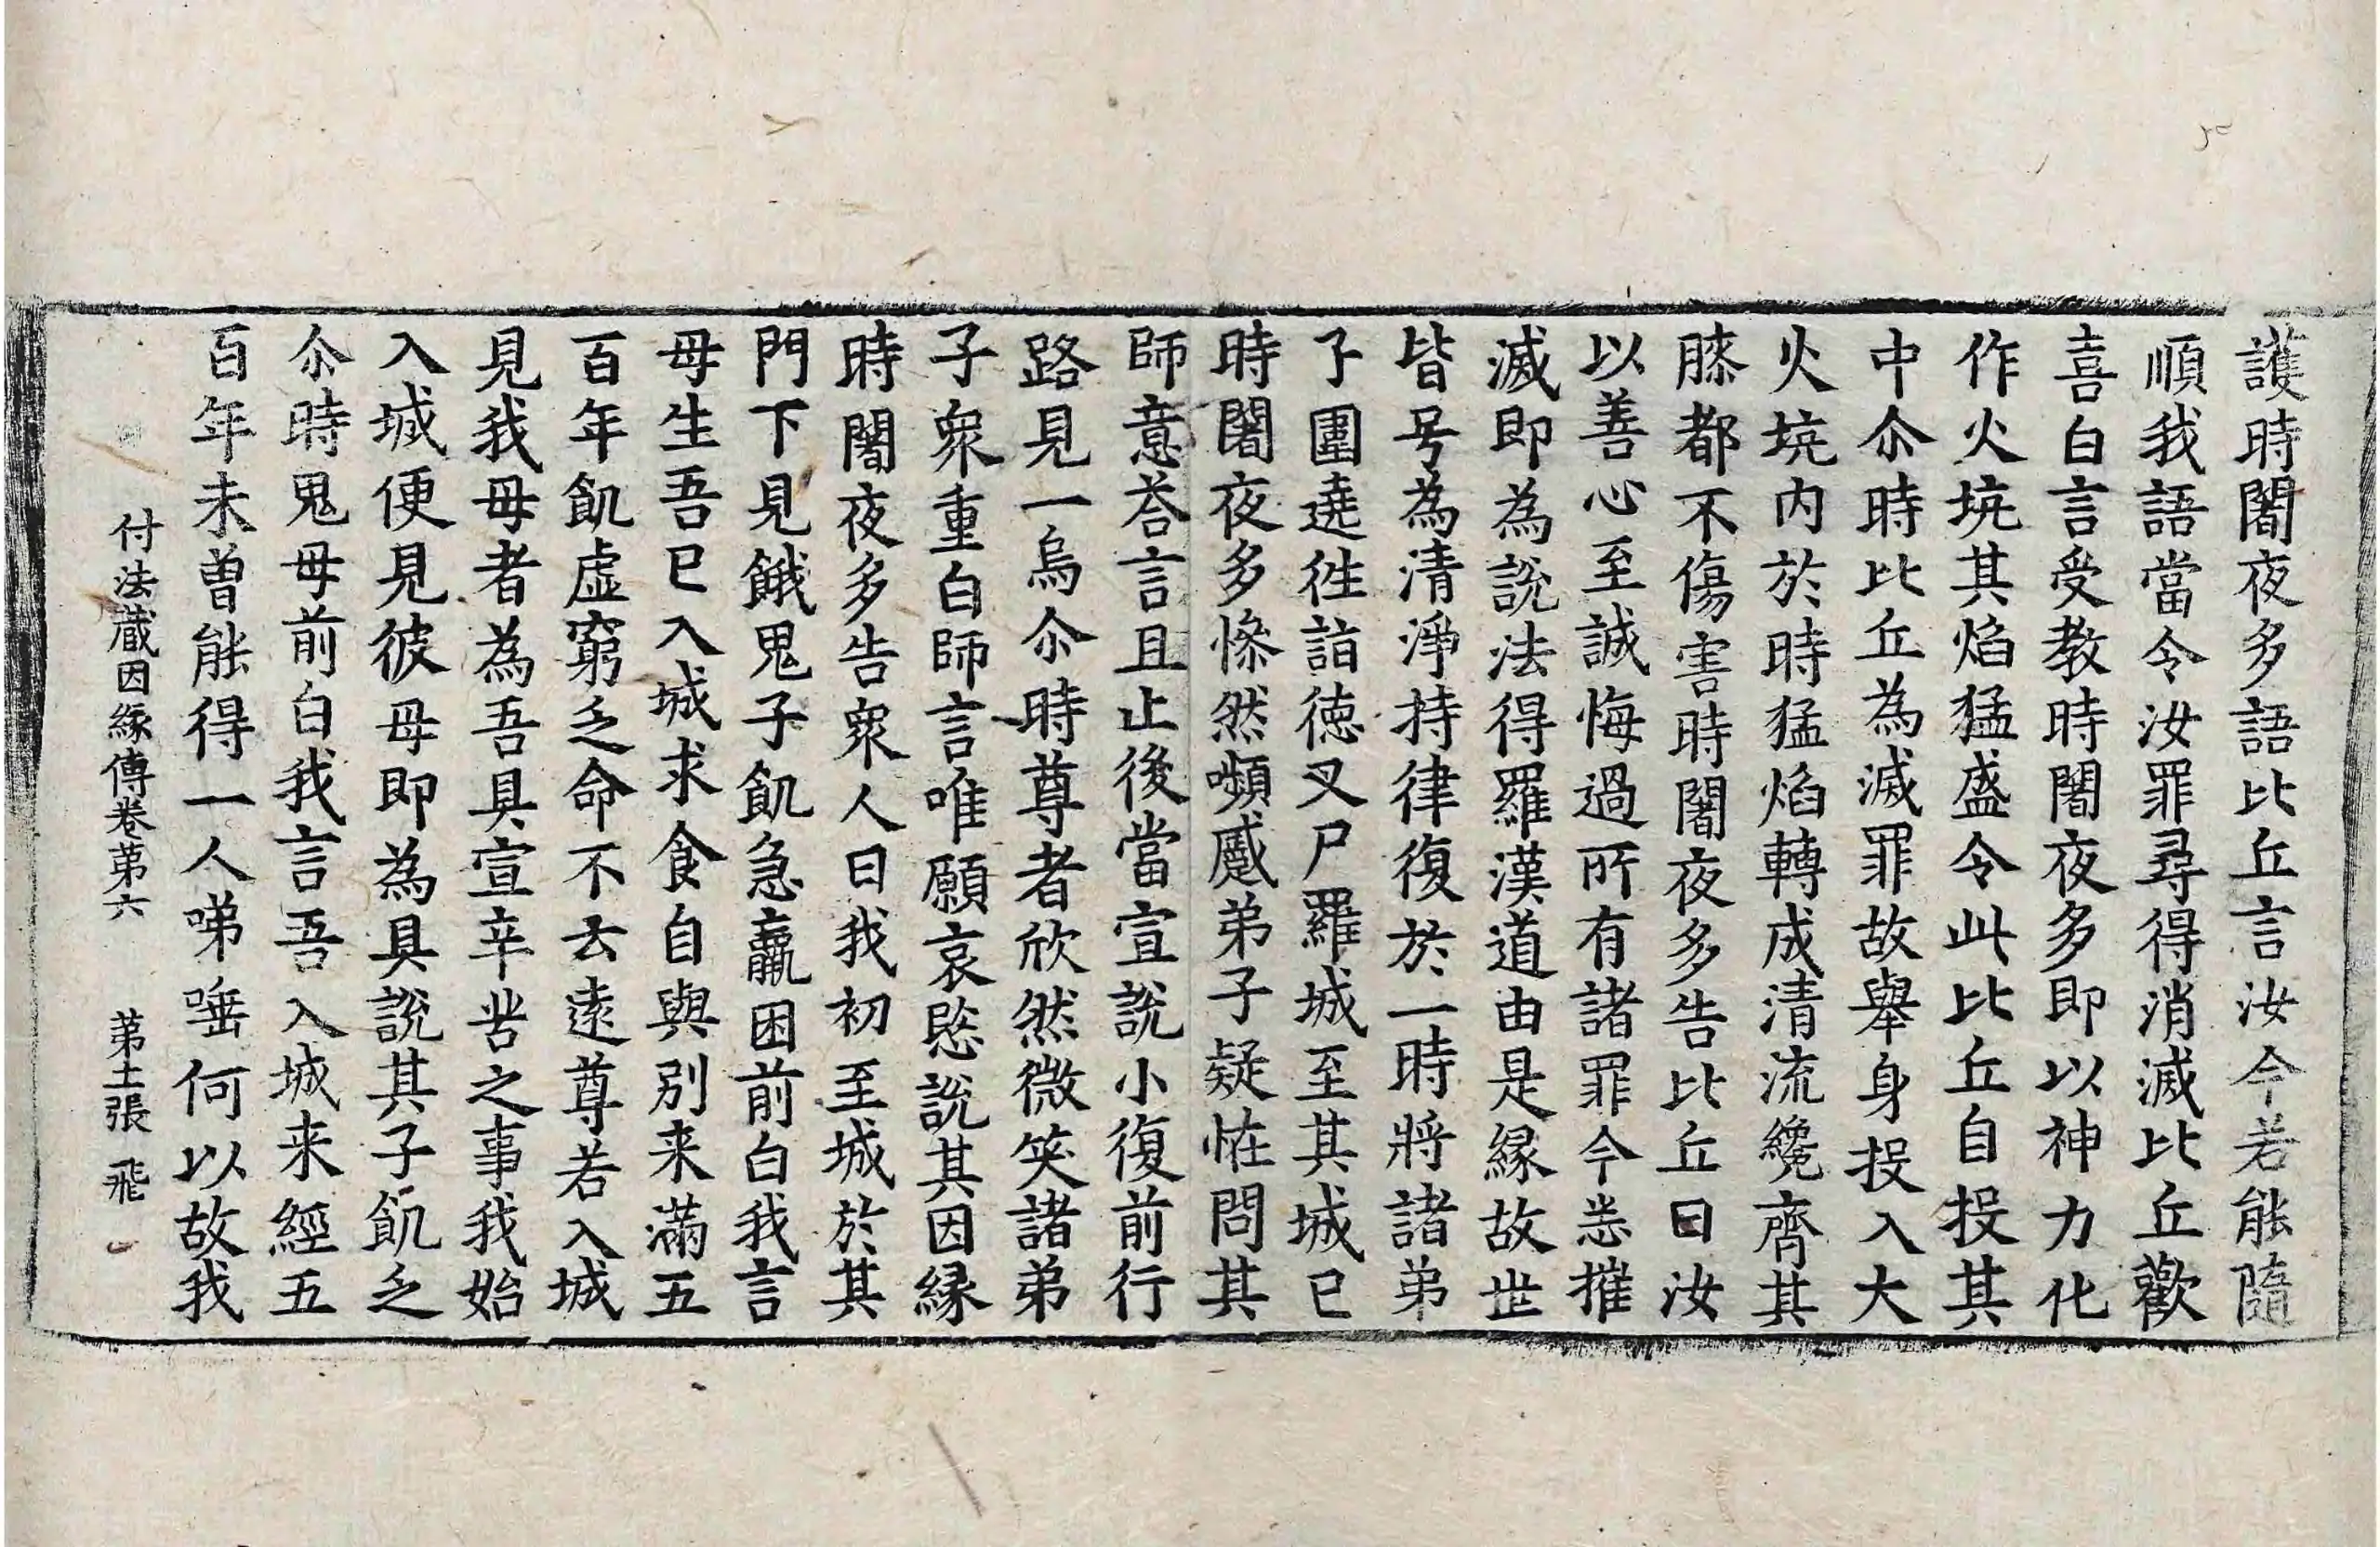 護時闍夜多語比丘言汝今若能隨
順我語當令汝罪尋得消滅比丘歡
喜白言受教時闍夜多即以神力化
作火坑其焰猛盛令此比丘自投其
中尒時比丘為滅罪故舉身投入大
火坑内於時猛焰轉成清流纔齊其
膝都不傷害時闍夜多告比丘曰汝
以善心至誠悔過所有諸罪今悉摧
滅即為說法得羅漢道由是緣故世
皆号為清淨持律復於一時將諸弟
子圍遶徃詣徳叉尸羅城至其城已
時闍夜多慘然嚬蹙弟子疑恠問其
師意荅言且止後當宣說小復前行
路見一烏尒時尊者欣然微笑諸弟
子衆重白師言唯願哀愍說其因緣
時闍夜多告衆人曰我初至城於其
門下見餓鬼子飢急羸困前白我言
母生吾已入城求食自與別来滿五
百年飢虛窮乏命不去遠尊若入城
見我母者為吾具宣辛苦之事我始
入城便見彼母即為具說其子飢乏
尒時鬼母前白我言吾入城来經五
百年未曽能得一人㖒唾何以故我
付法蔵因緣傳卷苐六 苐土張 飛